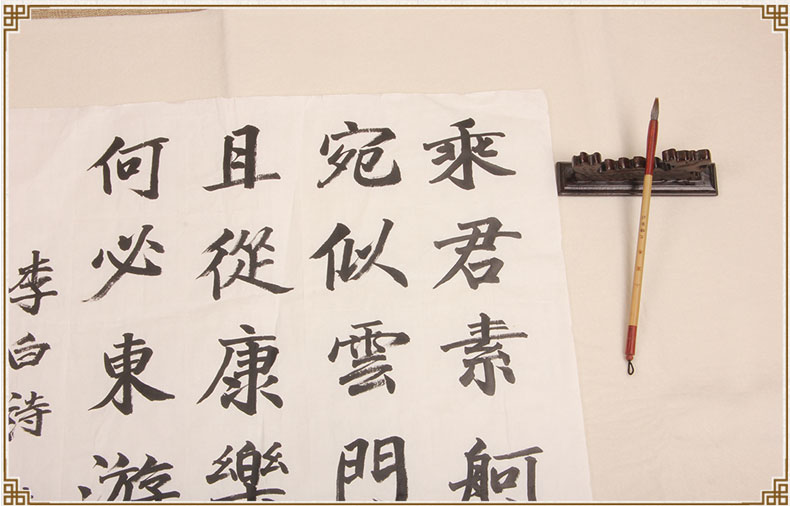 乘君素舸
宛似雲門
且從康樂
何必東游
李白詩